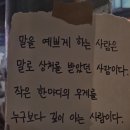 말을 예쁘게 하는 사람은
말로 상처를 받았던 사람이다.
작은 한마디의 무게를
누구보다 깊이 아는 사람이다.